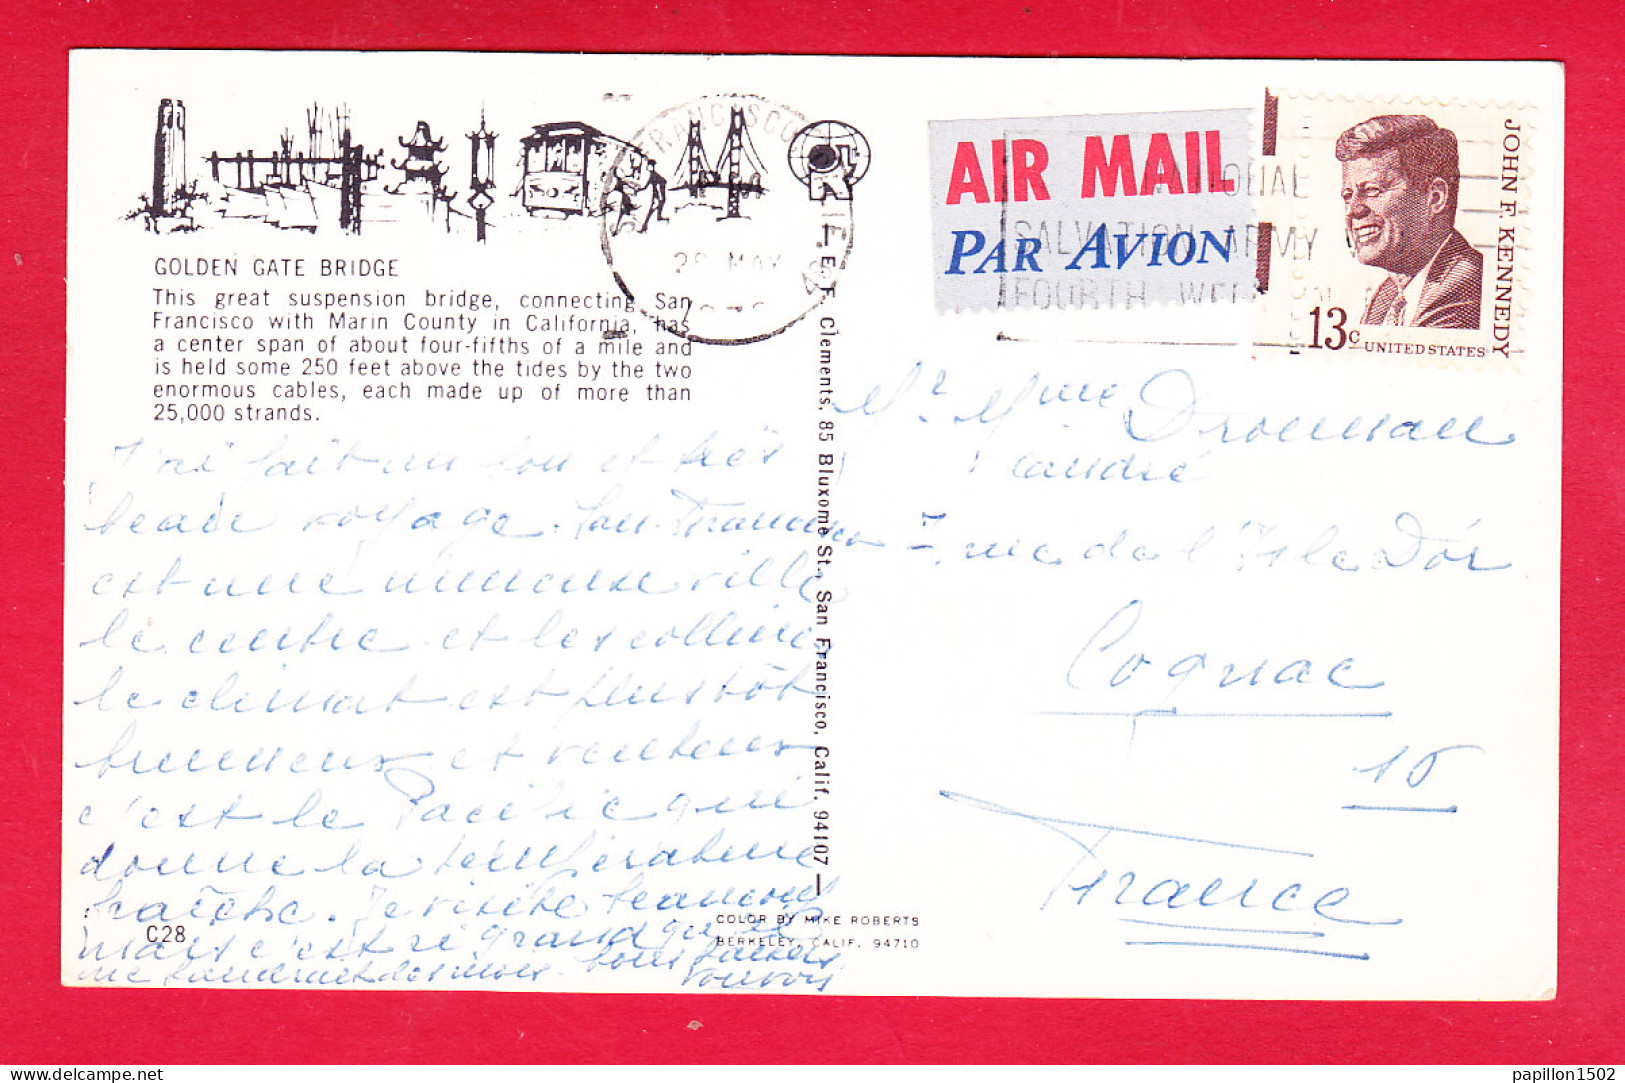 GOLDEN GATE BRIDGE
This great suspension bridge, connecting San
Francisco with Marin County in California, has
a center span of about four-fifths of a mile and
is held some 250 feet above the tides by the two
enormous cables, each made up of more than
25,000 strands.
J'ai fait un bon et très
beau voyage. San Francisco
est une immense ville
le centre et les collines
le climat est plustôt
brumeux et venteux
c'est le Pacific qui
donne la température
fraîche. Je visite beaucoup
mais c'est si grand qu'il
me faudrait des mois. bons baisers
C28
E. F. Clements, 85 Bluxome St., San Francisco, Calif. 94107
COLOR BY MIKE ROBERTS
BERKELEY, CALIF. 94710
SAN FRANCISCO
28 MAY
AIR MAIL
PAR AVION
NATIONAL
SALVATION ARMY
FOURTH
JOHN F. KENNEDY
13c
UNITED STATES
Mr Mme
7 rue de l'Isle D'Or
Cognac
16
France
papillon1502